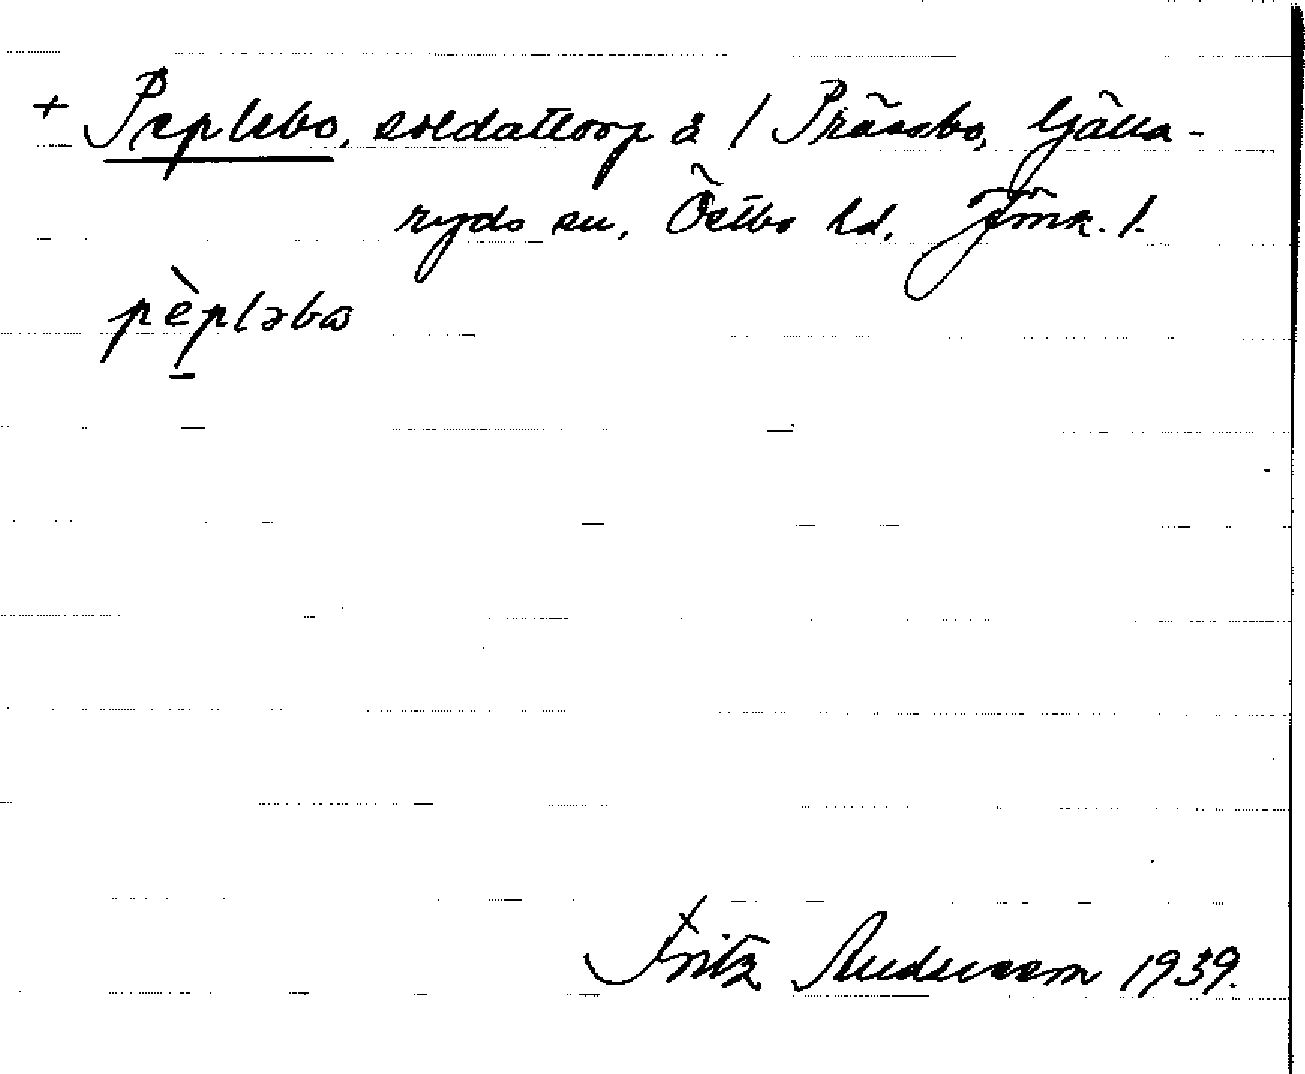 + Peplebo, soldattorp å / Prässbo, Gjälla-
ryds sn, Östbo hd, Jönk. l.
pèpləbω
Fritz Andersson 1939.